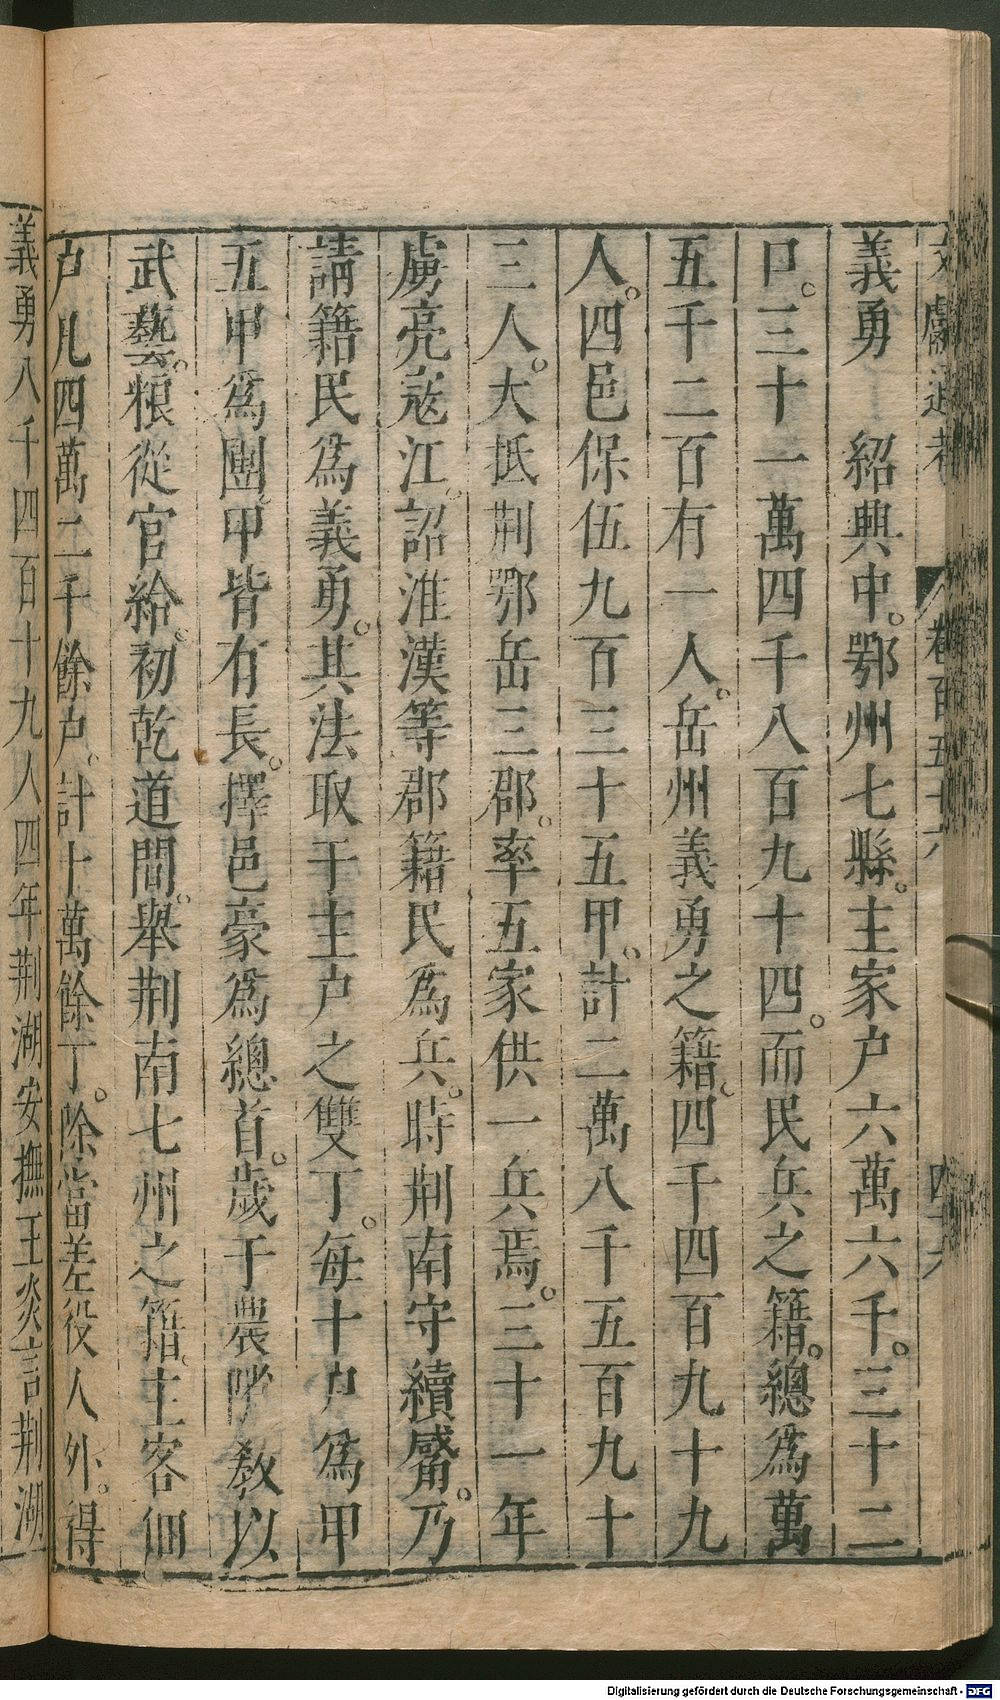 文獻通考　卷百五十六　四十六
義勇　紹興中鄂州七縣主家户六萬六千三十二
口三十一萬四千八百九十四而民兵之籍總爲萬
五千二百有一人岳州義勇之籍四千四百九十九
人四邑保伍九百三十五甲計二萬八千五百九十
三人大抵荆鄂岳三郡率五家供一兵焉三十一年
虜亮寇江詔淮漢等郡籍民爲兵時荆南守續觱乃
請籍民爲義勇其法取于主户之雙丁每十户爲甲
五甲爲團甲皆有長擇邑豪爲總首歲于農隙教以
武藝粮從官給初乾道間舉荆南七州之籍主客佃
户凡四萬二千餘户計十萬餘丁除當差役人外得
義勇八千四百十九人四年荆湖安撫王炎言荆湖
Digitalisierung gefördert durch die Deutsche Forschungsgemeinschaft - DFG